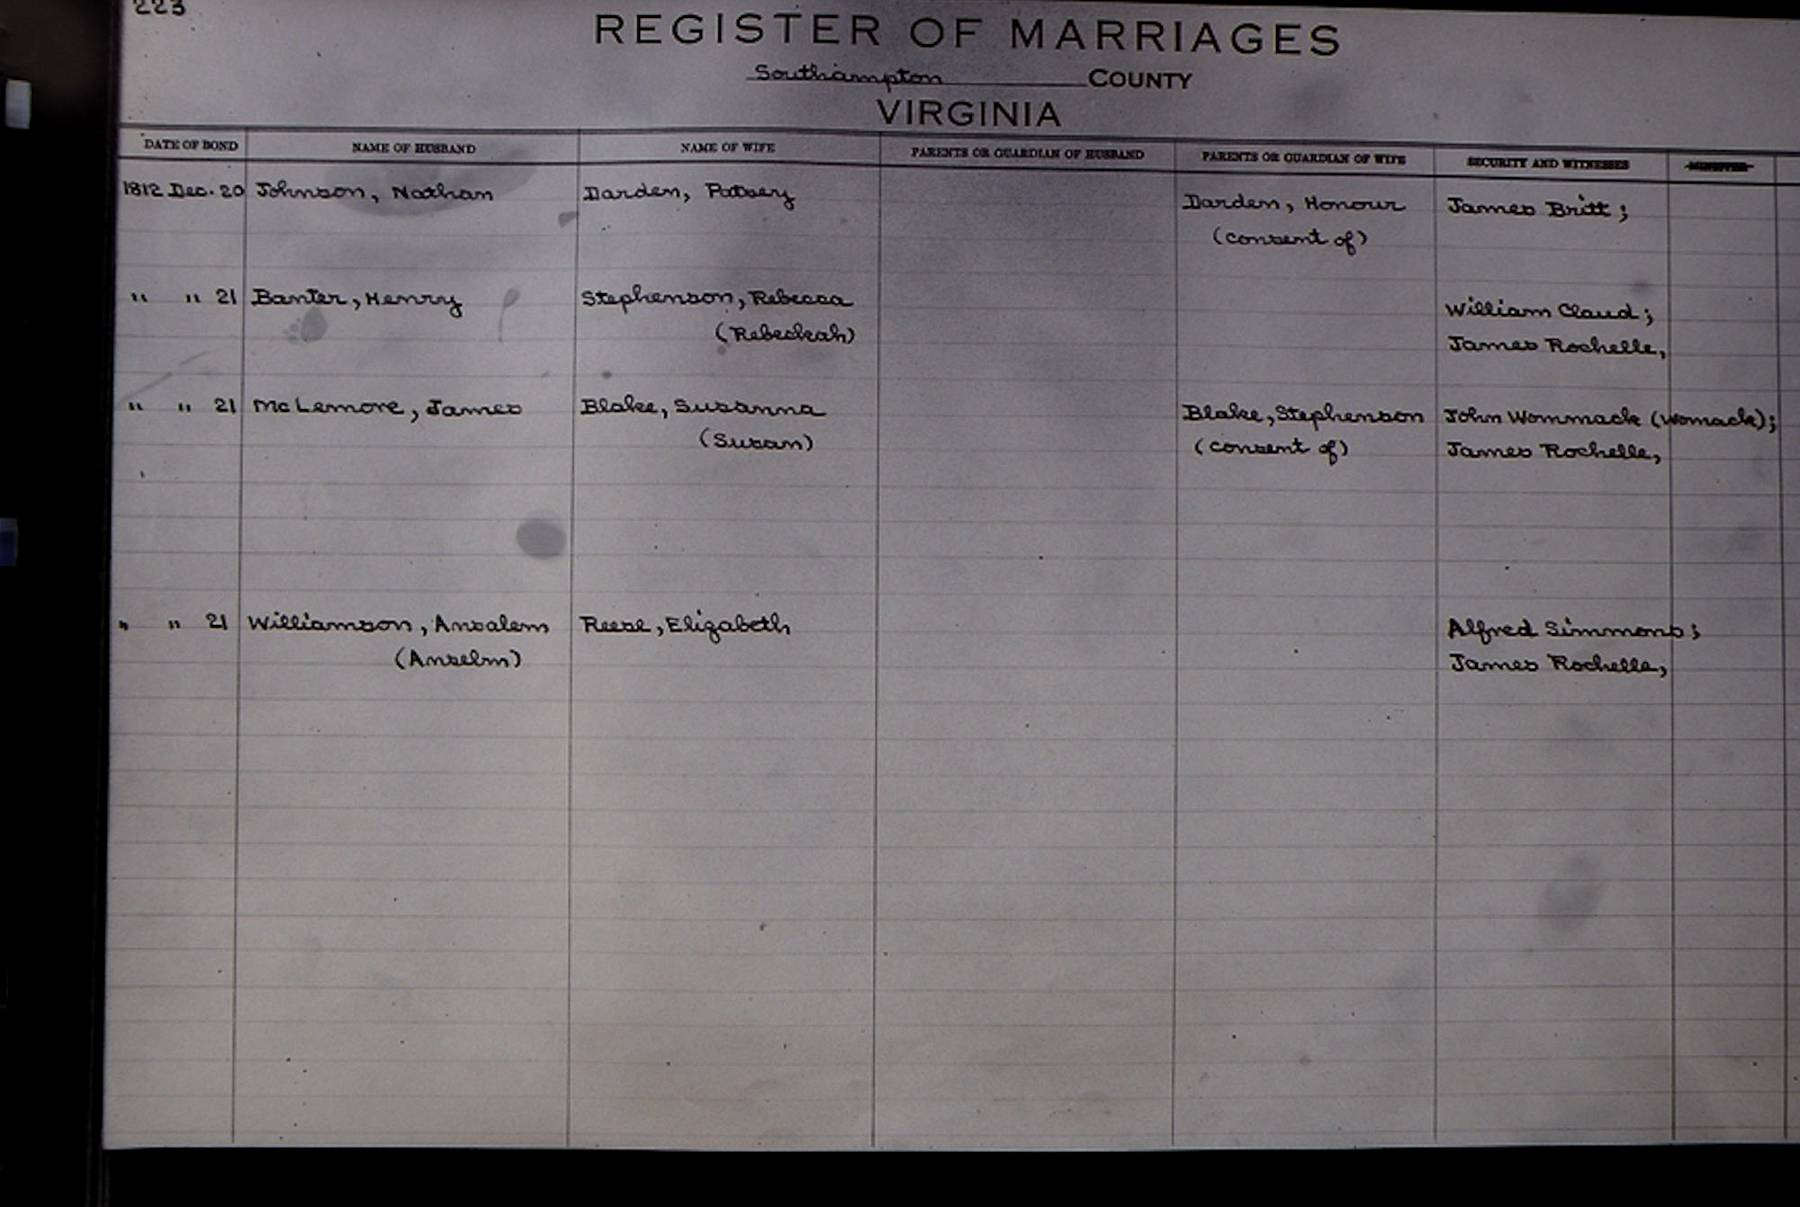 223
REGISTER OF MARRIAGES
Southampton COUNTY
VIRGINIA
DATE OF BOND NAME OF HUSBAND NAME OF WIFE PARENTS OR GUARDIAN OF HUSBAND PARENTS OR GUARDIAN OF WIFE SECURITY AND WITNESSES MINISTER
1812 Dec. 20 Johnson, Nathan Darden, Patsey Darden, Honour James Britt;
(consent of)
" " 21 Banter, Henry Stephenson, Rebecca William Claud;
(Rebeckah) James Rochelle,
" " 21 McLemore, James Blake, Susanna Blake, Stephenson John Wommack (Womack);
(Susan) (consent of) James Rochelle,
" " 21 Williamson, Ansalem Reese, Elizabeth Alfred Simmons;
(Anselm) James Rochelle,